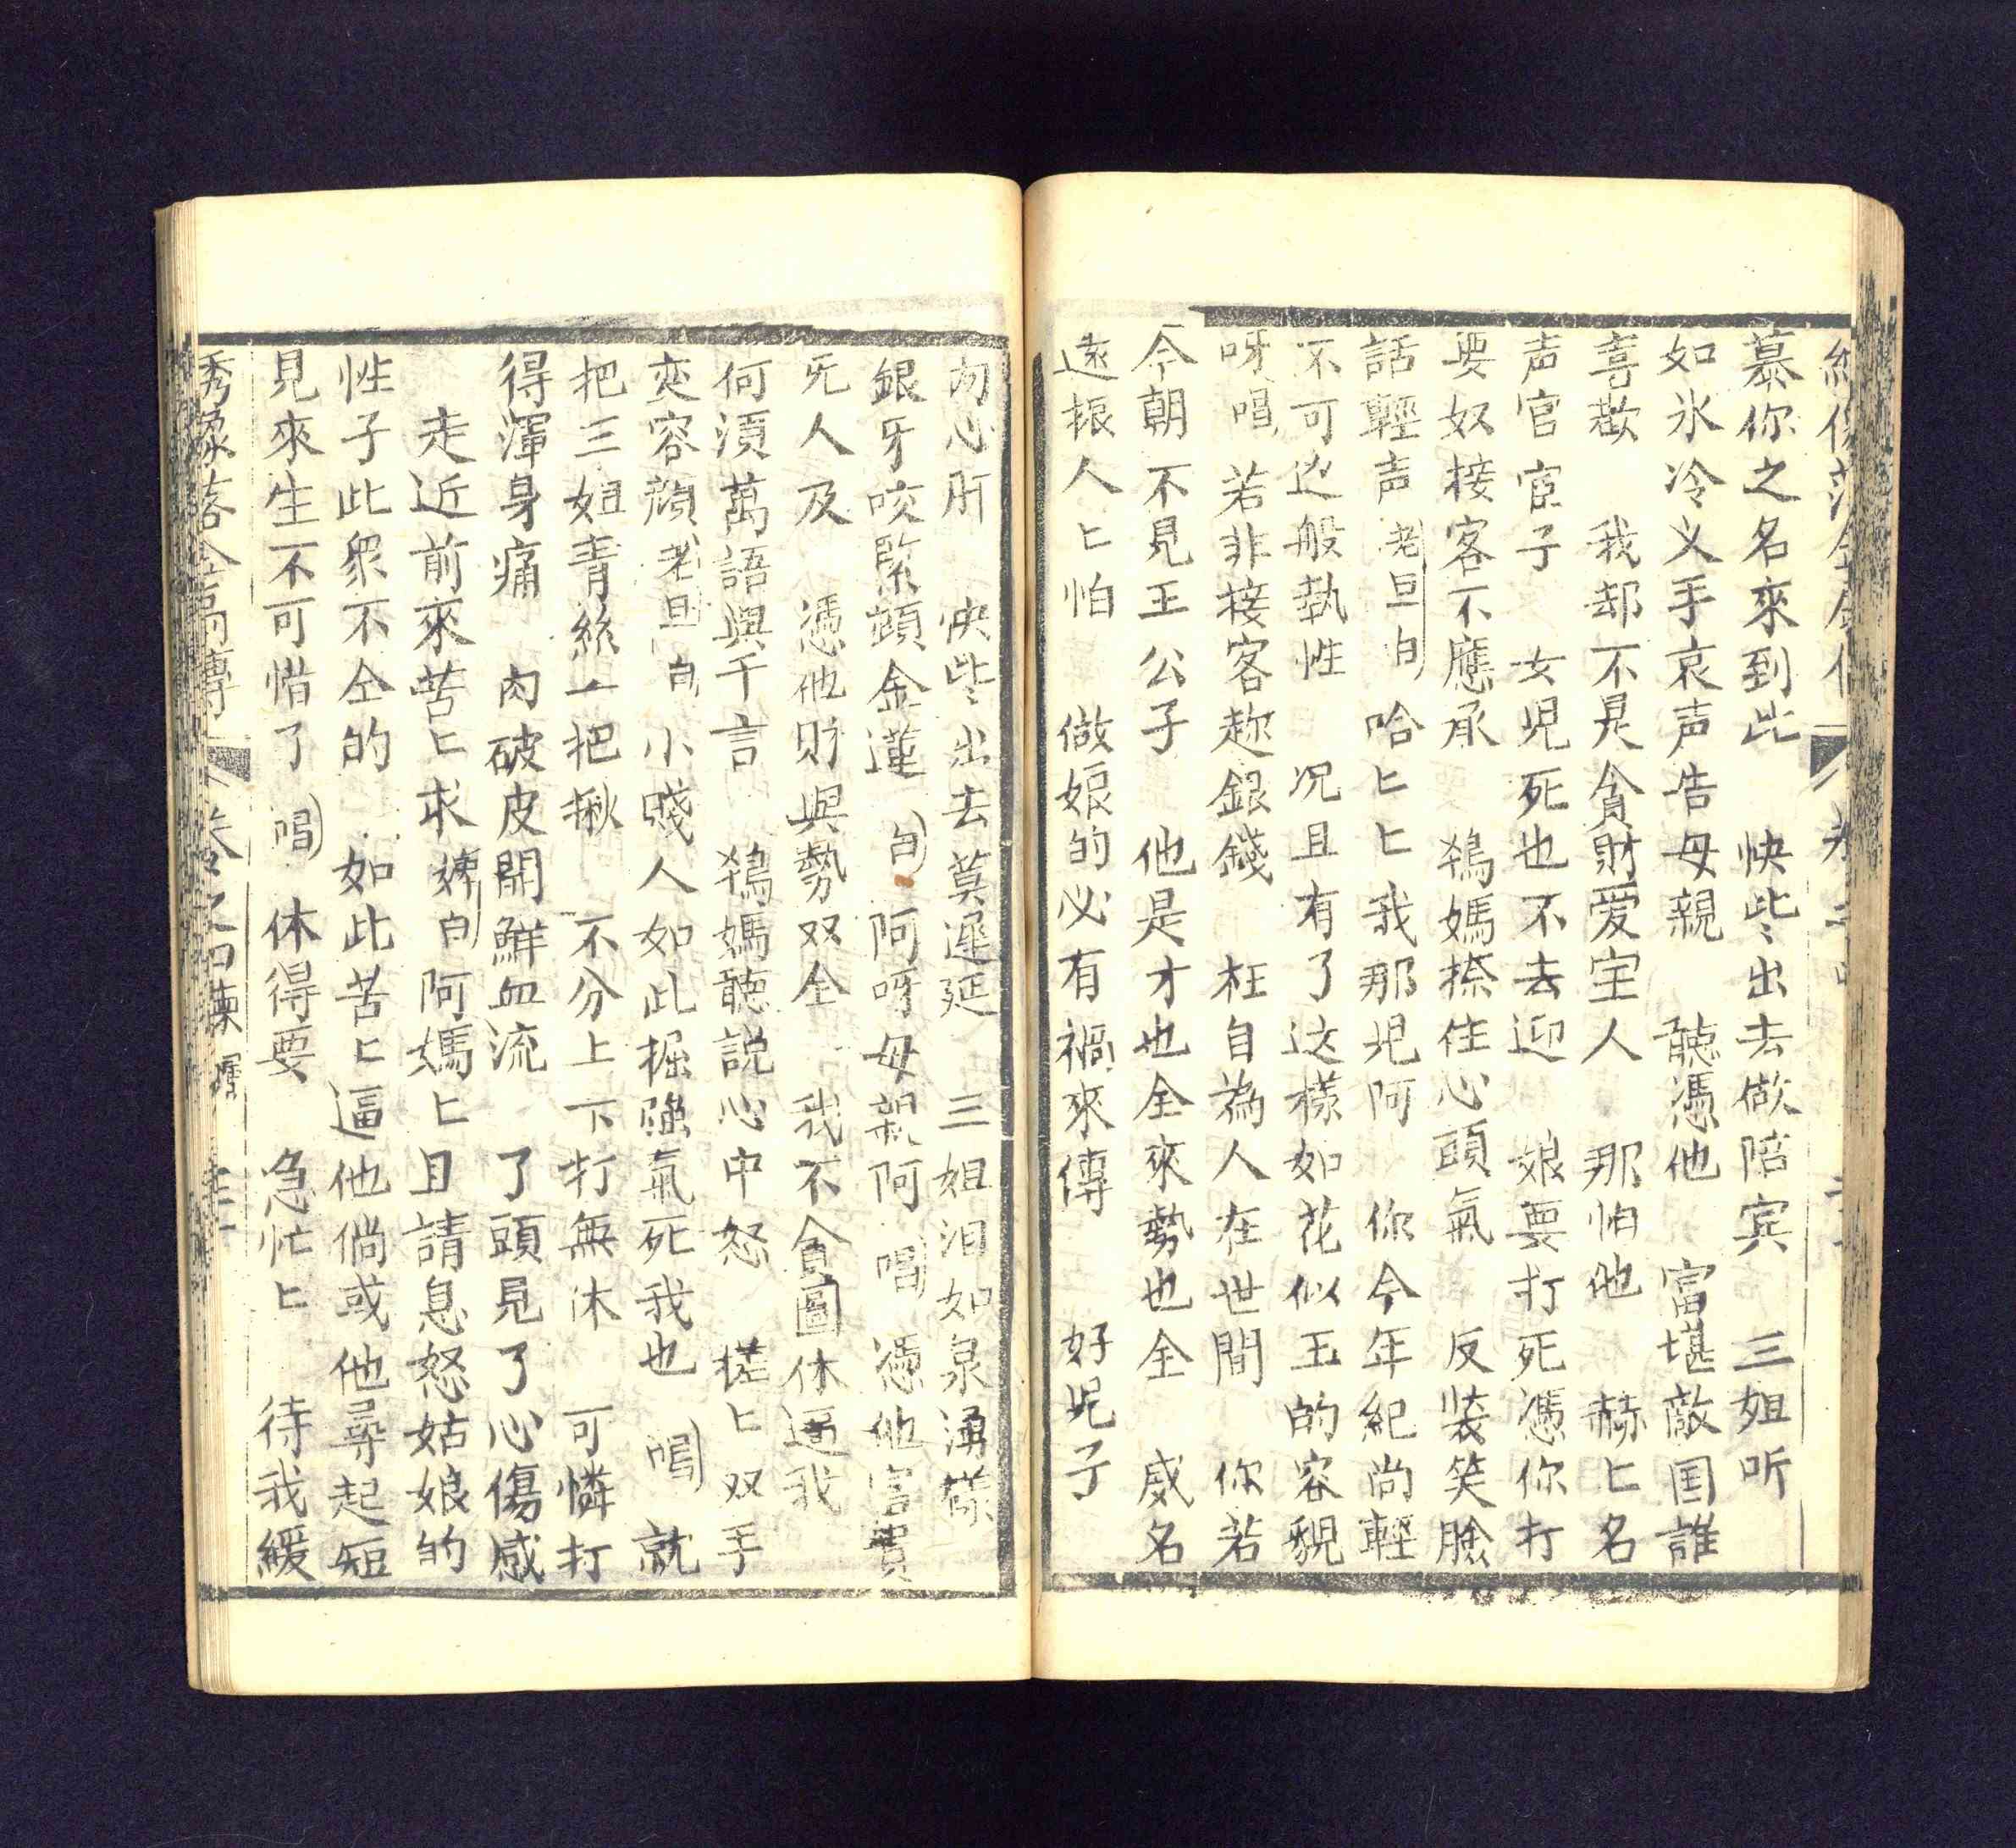 慕你之名來到此　快些〻出去做陪宾　三姐听
如氷冷义手哀声告母親　聽憑他　富堪敵国誰
喜歡　我却不是貪財爱宝人　那怕他　赫匕名
声官宦子　女児死也不去迎　娘要打死憑你打
要奴接客不應承　鴇媽捺住心頭氣　反装笑臉
話輕声　老旦白　哈匕匕我那児阿　你今年紀尚輕
不可这般执性　况且有了这樣如花似玉的容貌
呀唱　若非接客趂銀錢　枉自為人在世間　你若
今朝不見王公子　他是才也全來勢也全　威名
遠振人匕怕　做娘的必有禍來傳　好児子
勿心肝　快些〻出去莫遲延　三姐泪如泉湧樣
銀牙咬緊顛金蓮　白　阿呀母親阿　唱　憑他富貴
旡人及　憑他財與勢双全　我不貪圖休逼我
何須萬語與千言　鴇媽聽説心中怒　搓匕双手
変容顔　老旦白　小賤人如此掘強氣死我也　唱　就
把三姐青絲一把揪　不分上下打無休　可憐打
得渾身痛　肉破皮開鮮血流　了頭見了心傷感
走近前來苦匕求　婢白　阿媽匕且請息怒姑娘的
性子此衆不仝的　如此苦匕逼他倘或他尋起短
見來生不可惜了　唱　休得要　急忙匕　待我緩
秀像落金扇傳　卷之四